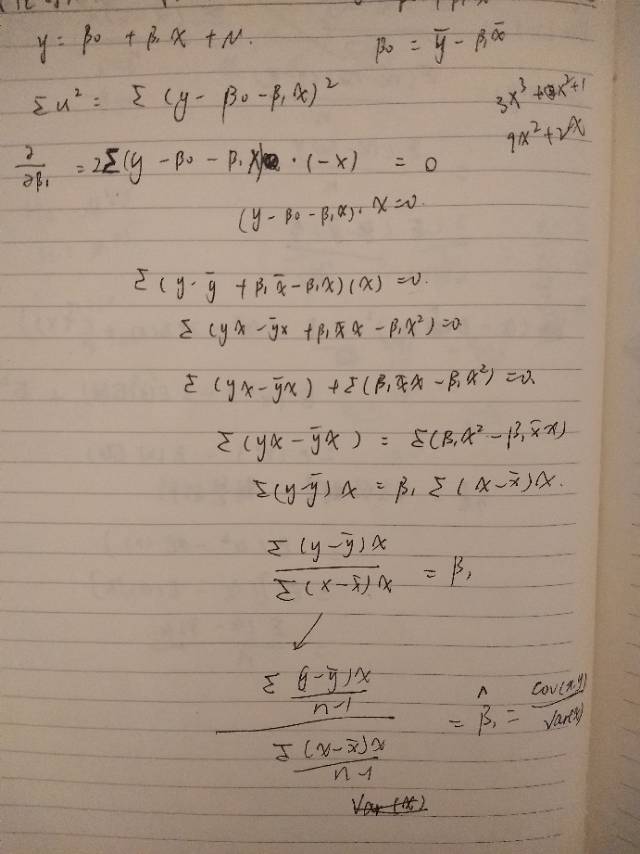 y = β₀ + β₁x + N.
β₀ = ȳ - β₁x̄
Σu² = Σ (y - β₀ - β₁x)²
3x³ + x² + 1
9x² + 2x
∂/∂β₁ = 2Σ(y - β₀ - β₁x) · (-x) = 0
(y - β₀ - β₁x) · x = 0.
Σ (y - ȳ + β₁x̄ - β₁x)(x) = 0.
Σ (yx - ȳx + β₁x̄x - β₁x²) = 0
Σ (yx - ȳx) + Σ(β₁x̄x - β₁x²) = 0.
Σ(yx - ȳx) = Σ(β₁x² - β₁x̄x)
Σ(y-ȳ)x = β₁ Σ(x-x̄)x.
Σ (y-ȳ)x / Σ (x-x̄)x = β₁
Σ (y-ȳ)x / n-1
= β̂₁ = cov(x,y) / Var(x)
Σ (x-x̄)x / n-1
Var(x)